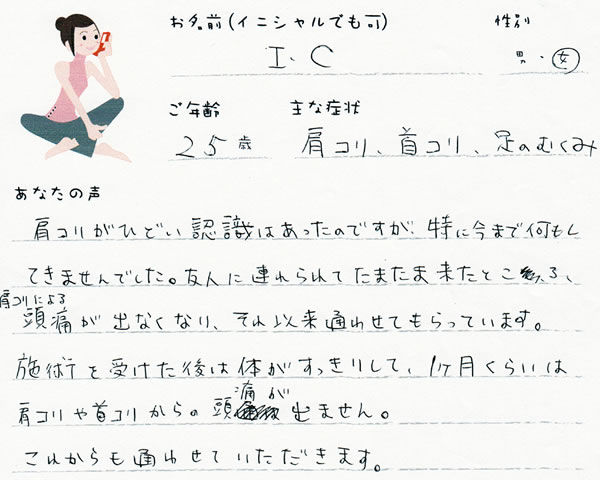 お名前(イニシャルでも可) 性別
I.C 男・女
ご年齢 主な症状
25歳 肩コリ、首コリ、足のむくみ
あなたの声
肩コリがひどい認識はあったのですが、特に今まで何もし
てきませんでした。友人に連れられてたまたま来たところ、
肩コリによる
頭痛が出なくなり、それ以来通わせてもらっています。
施術を受けた後は体がすっきりして、1ヶ月くらいは
肩コリや首コリからの頭痛が出ません。
これからも通わせていただきます。